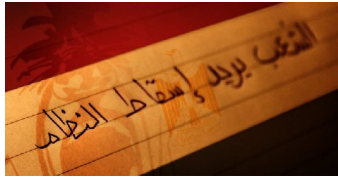 الشعب يريد إسقاط النظام